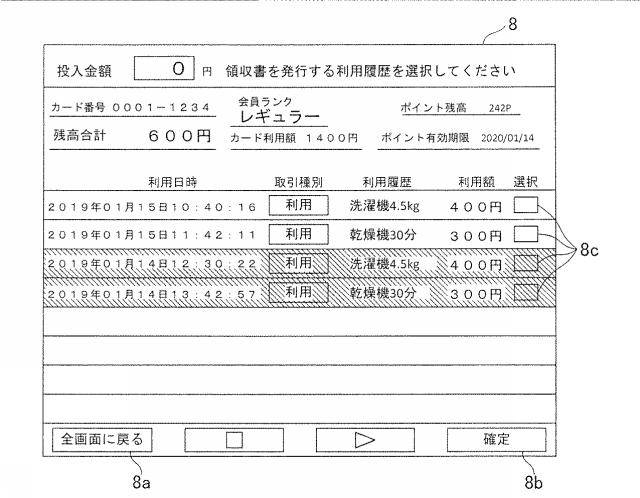 8
投入金額 0 円 領収書を発行する利用履歴を選択してください
カード番号 0001-1234 会員ランク レギュラー ポイント残高 242P
残高合計 600円 カード利用額 1400円 ポイント有効期限 2020/01/14
利用日時 取引種別 利用履歴 利用額 選択
2019年01月15日10:40:16 利用 洗濯機4.5kg 400円
2019年01月15日11:42:11 利用 乾燥機30分 300円
8c
2019年01月14日12:30:22 利用 洗濯機4.5kg 400円
2019年01月14日13:42:57 利用 乾燥機30分 300円
全画面に戻る 確定
8a 8b